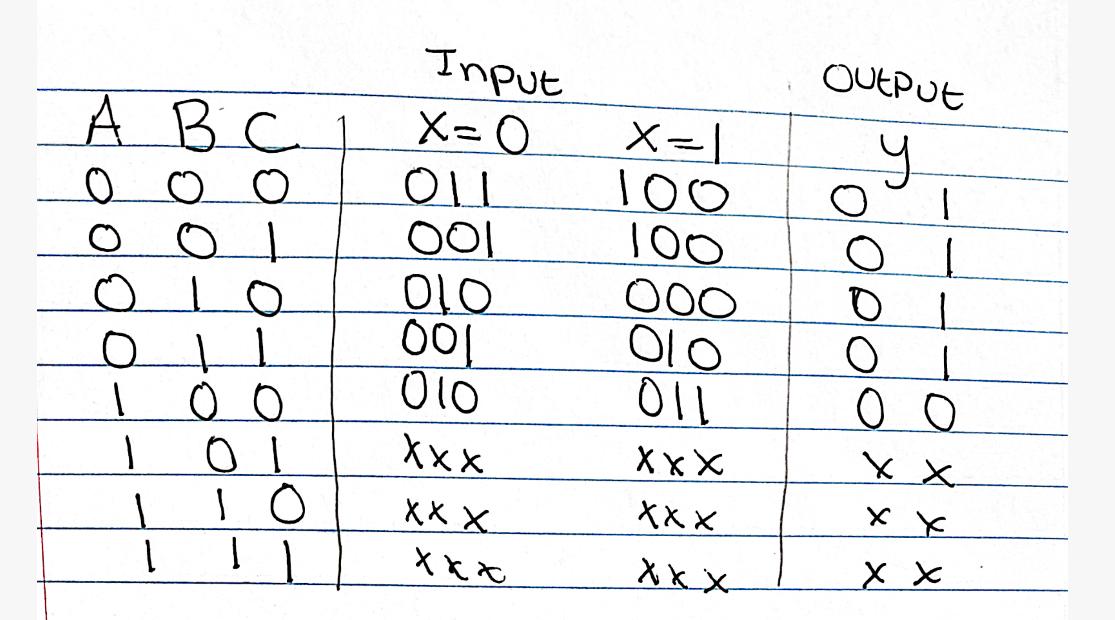 Input Output
A B C X=0 X=1 y
0 0 0 011 100 0 1
0 0 1 001 100 0 1
0 1 0 010 000 0 1
0 1 1 001 010 0 1
1 0 0 010 011 0 0
1 0 1 xxx xxx x x
1 1 0 xxx xxx x x
1 1 1 xxx xxx x x